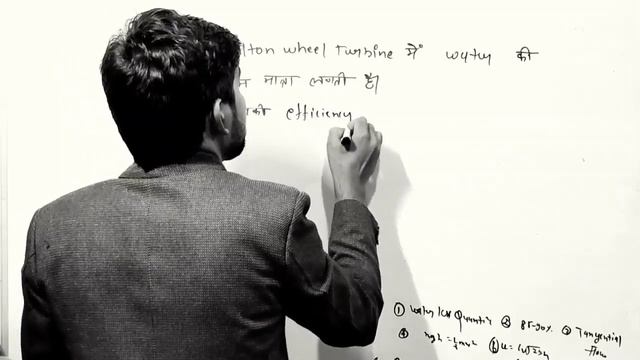 lton wheel Turbine में water की
मात्रा लगती है।
efficiency
① water less Quantity ② 85-90% ③ Tangential flow
④ mgh = ½mv²